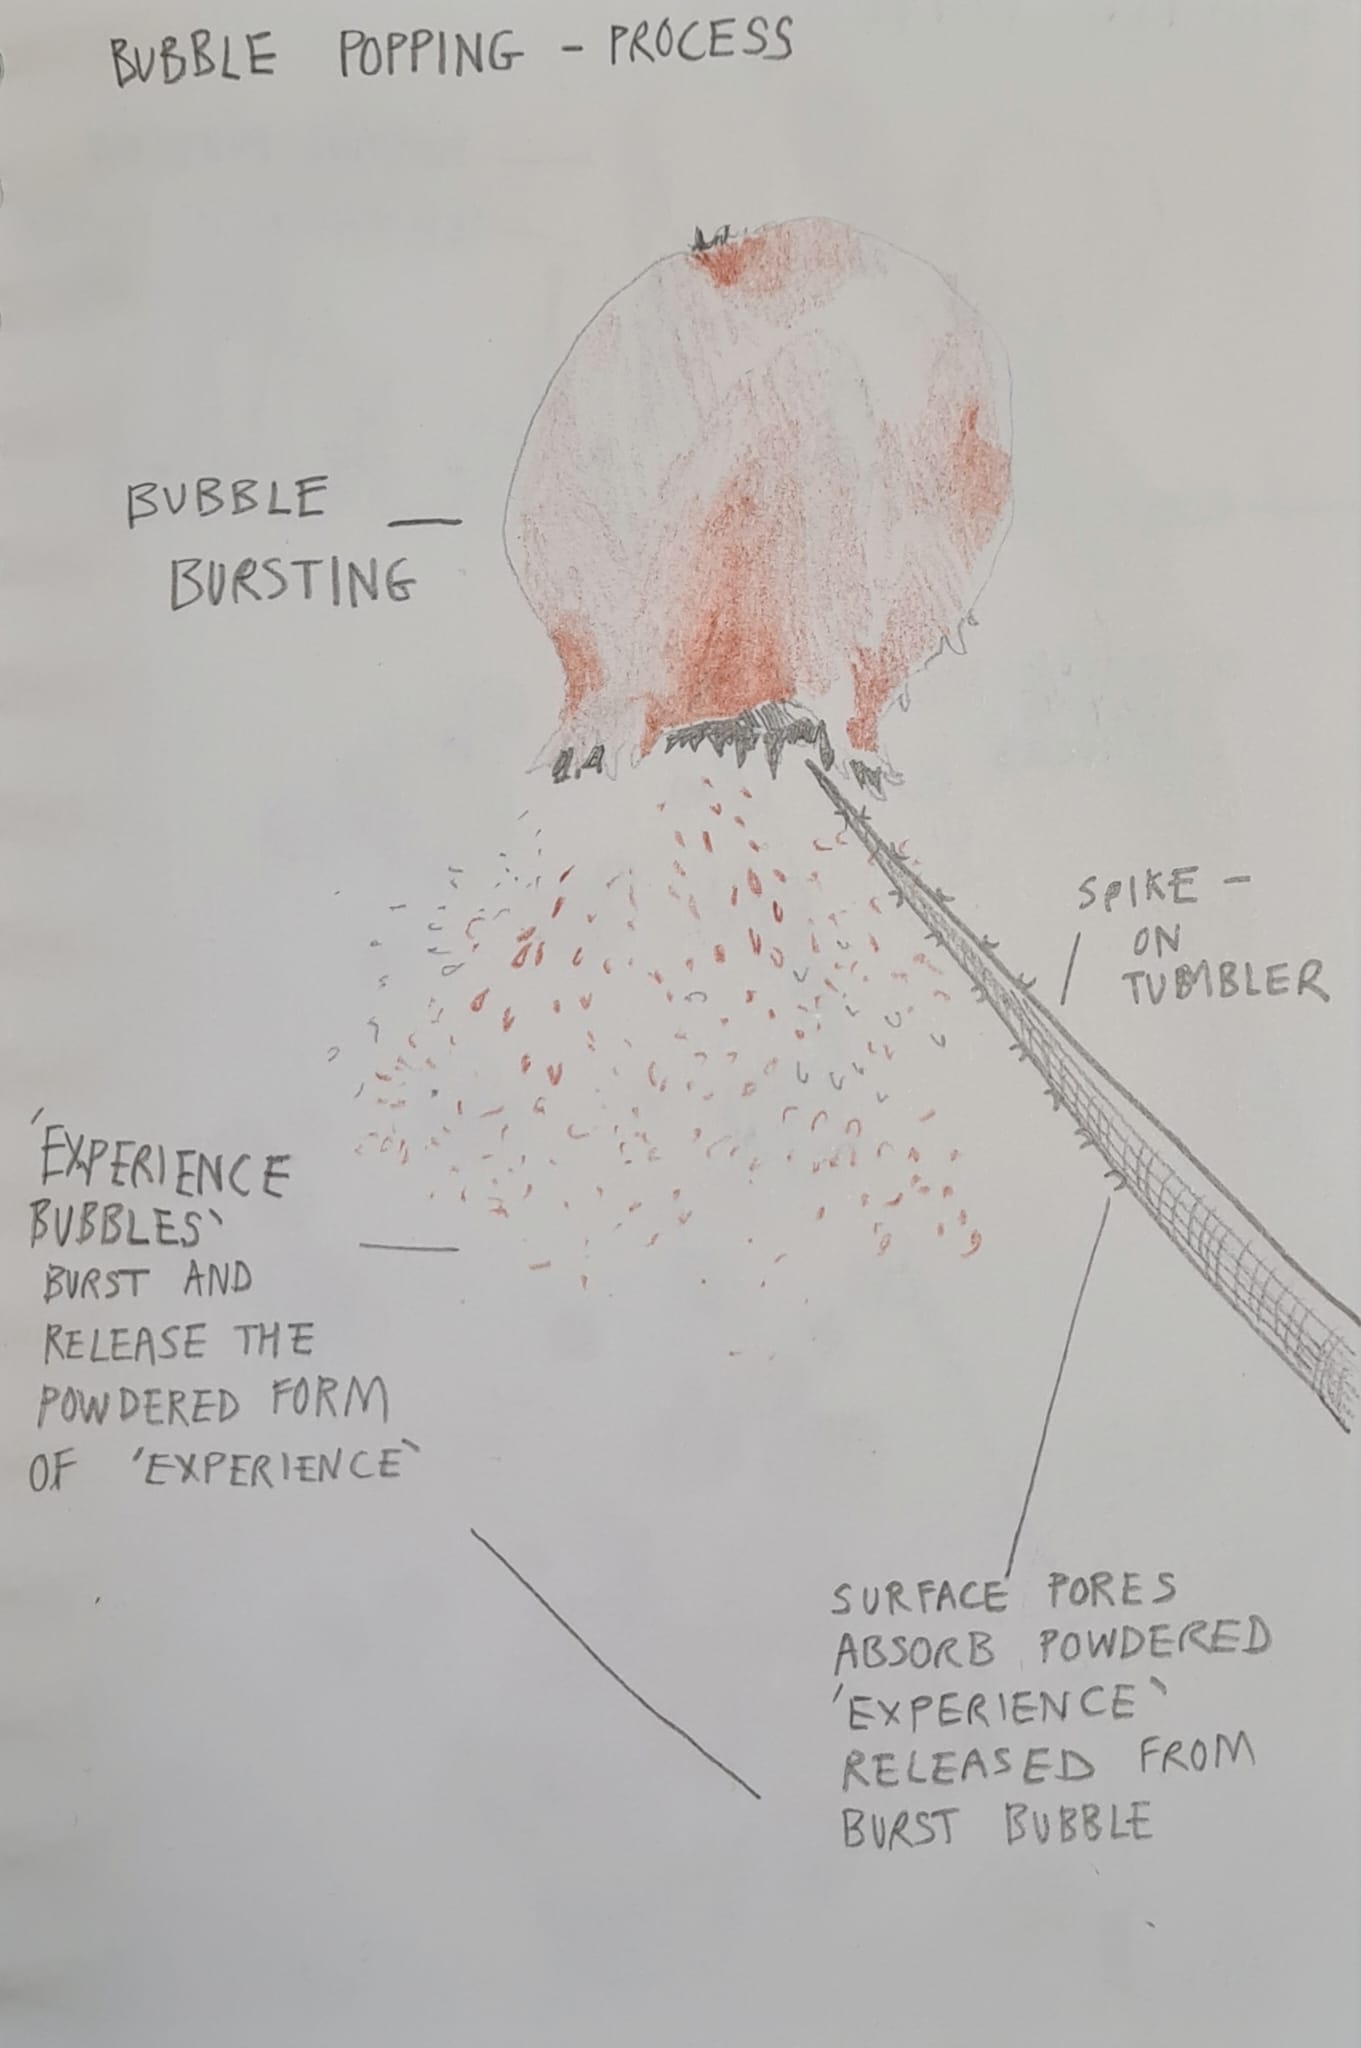 BUBBLE POPPING - PROCESS
BUBBLE
BURSTING
SPIKE -
ON
TUMBLER
'EXPERIENCE
BUBBLES'
BURST AND
RELEASE THE
POWDERED FORM
OF 'EXPERIENCE'
SURFACE PORES
ABSORB POWDERED
'EXPERIENCE'
RELEASED FROM
BURST BUBBLE